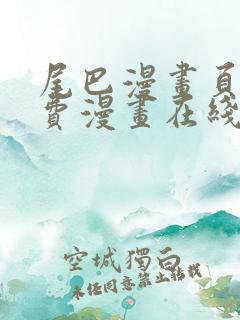 尾巴漫畫頁
費漫畫在綫
空城獨白
未任同意禁止轉載